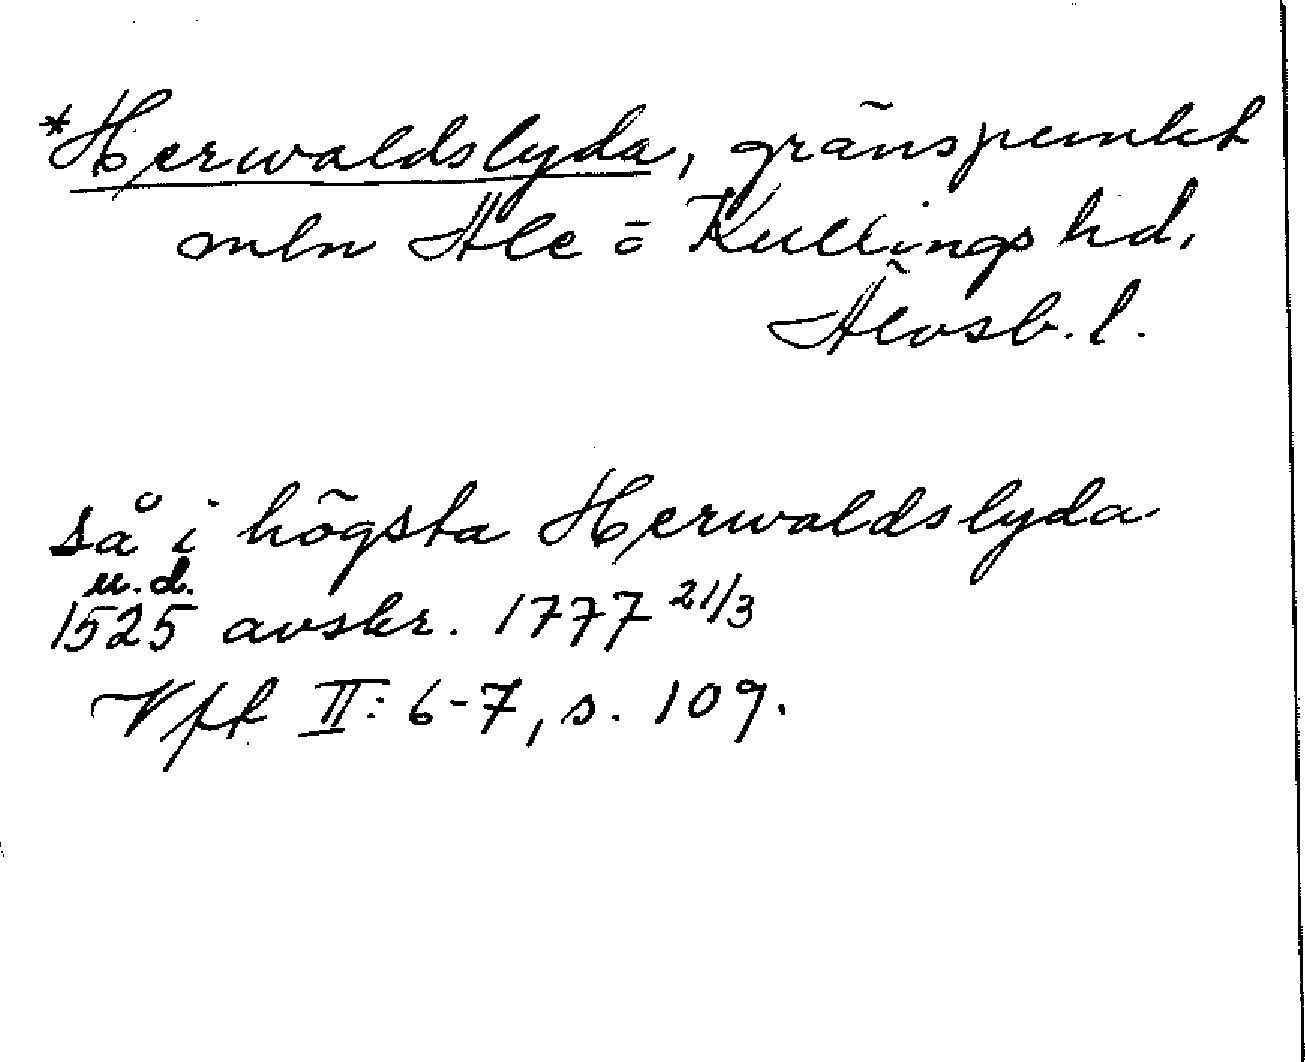 *Herwaldslyda, gränspunkt
mln Ale o Kullings hd.
Älvsb. l.
så i högsta Herwaldslyda
u.d.
1525 avskr. 1777 21/3
Vff II: 6-7, s. 109.